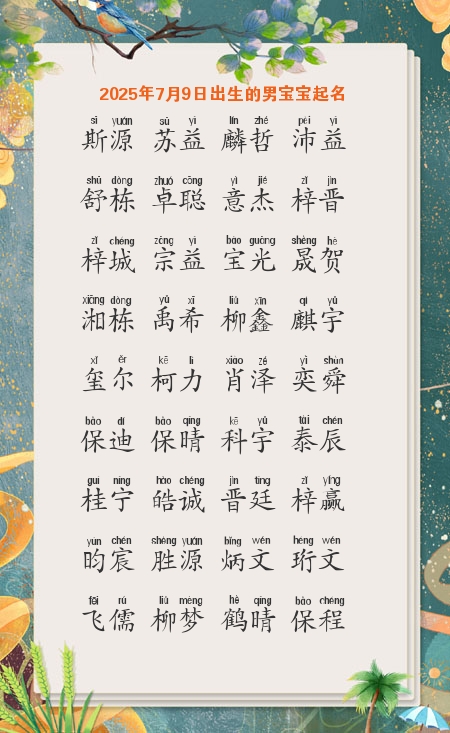 2025年7月9日出生的男宝宝起名
sī yuán sū yì lín zhé pèi yì
斯源 苏益 麟哲 沛益
shū dòng zhuó cōng yì jié zǐ jìn
舒栋 卓聪 意杰 梓晋
zǐ chéng zōng yì bǎo guāng shèng hè
梓城 宗益 宝光 晟贺
xiāng dòng yǔ xī liǔ xīn qí yǔ
湘栋 禹希 柳鑫 麒宇
xǐ ěr kē lì xiāo zé yì shùn
玺尔 柯力 肖泽 奕舜
bǎo dí bǎo qíng kē yǔ tài chén
保迪 保晴 科宇 泰辰
guì níng hào chéng jìn tíng zǐ yíng
桂宁 皓诚 晋廷 梓赢
yún chén shèng yuán bǐng wén héng wén
昀宸 胜源 炳文 珩文
fēi rú liǔ mèng hè qíng bǎo chéng
飞儒 柳梦 鹤晴 保程